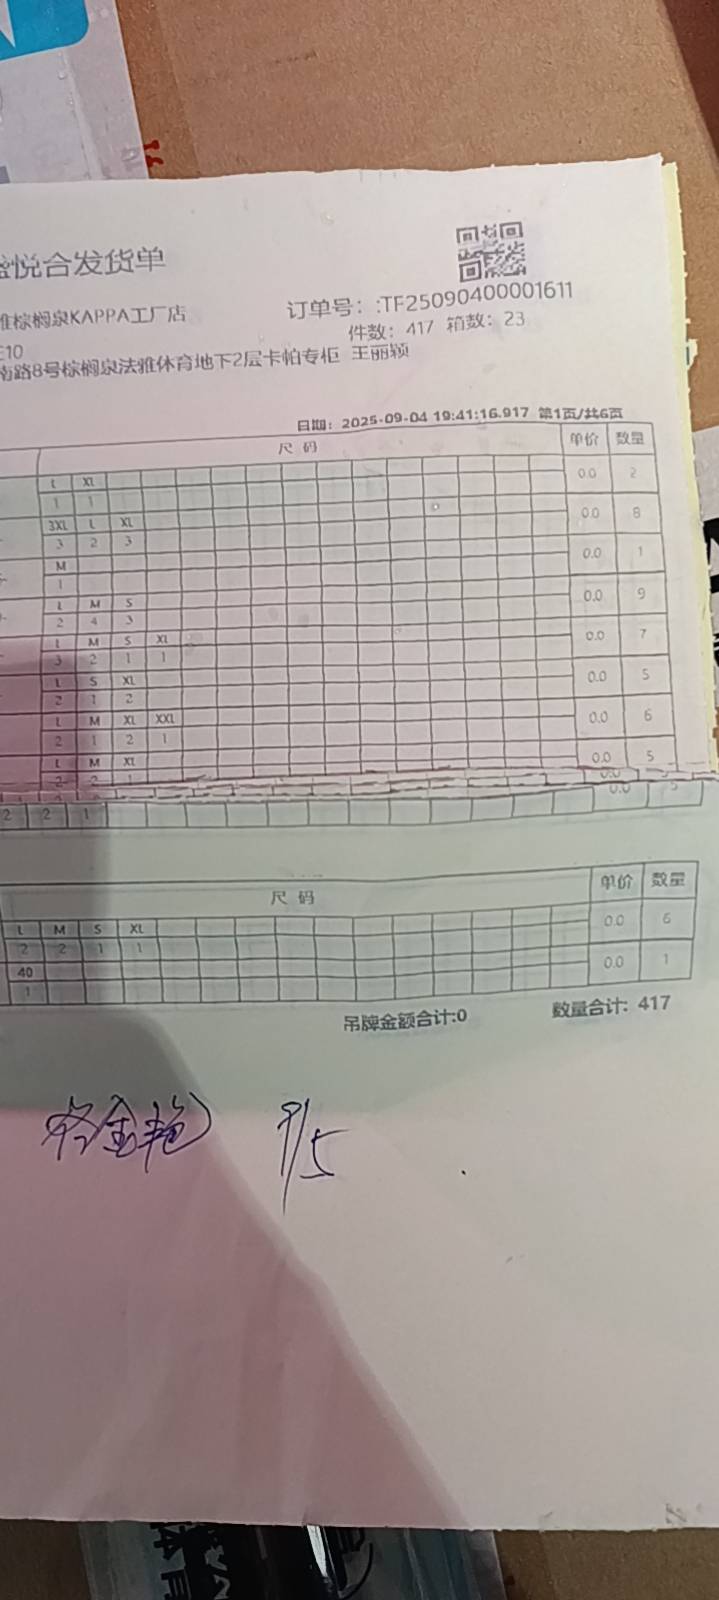 悦合发货单
订单号：:TF25090400001611
棕榈泉KAPPA工厂店
件数：417 箱数：23
E10
南路8号棕榈泉法雅体育地下2层卡帕专柜 王丽颖
日期：2025-09-04 19:41:16.917 第1页/共6页
尺 码 单价 数量
L XL 0.0 2
1 1
3XL L XL 0.0 8
3 2 3
M 0.0 1
1
L M S 0.0 9
2 4 3
L M S XL 0.0 7
3 2 1 1
L S XL 0.0 5
2 1 2
L M XL XXL 0.0 6
2 1 2 1
L M XL 0.0 5
2 2 1
0.0 5
2 2 1
尺 码 单价 数量
L M S XL 0.0 6
2 2 1 1
40 0.0 1
1
吊牌金额合计:0 数量合计: 417
金艳 9/5